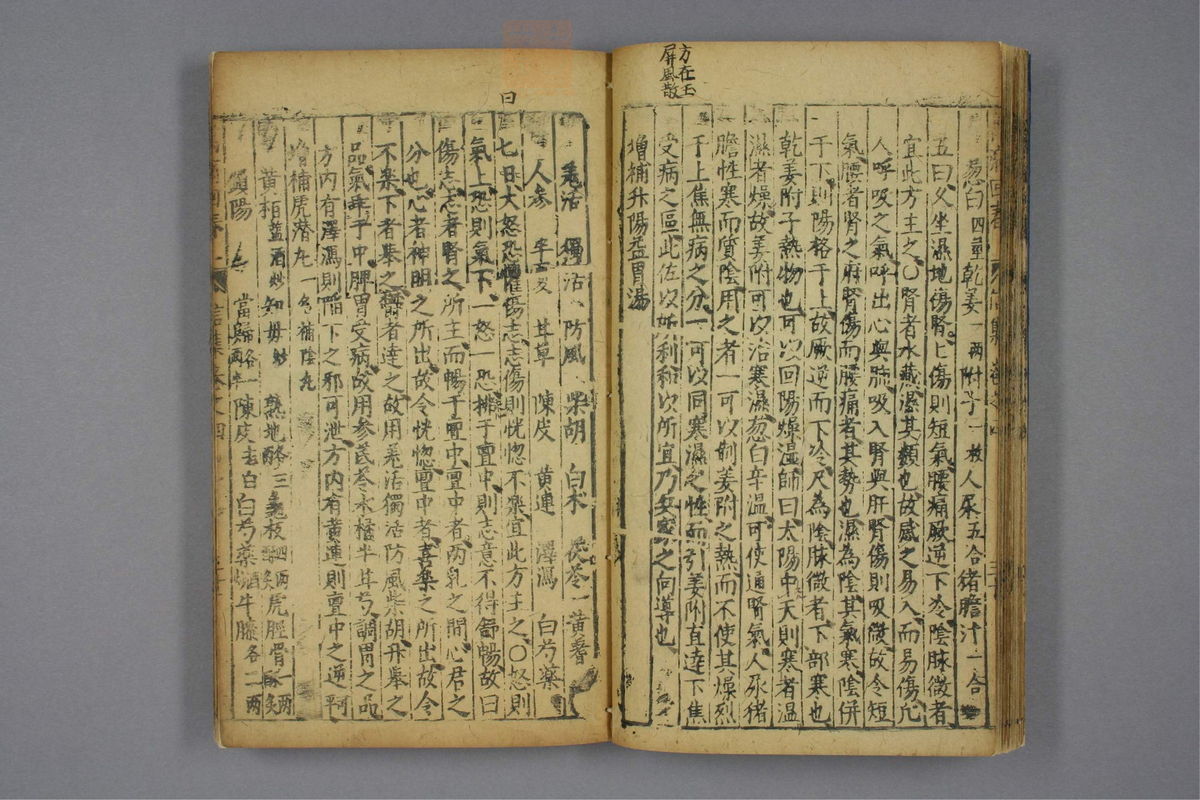 方在玉
屏風散
葱白四莖乾姜一兩附子一枚人尿五合猪膽汁一合
五曰久坐濕地傷腎上傷則短氣腰痛厥逆下冷陰脉微者
宜此方主之〇腎者水藏濕其類也故感之易入而易傷凡
人呼吸之氣呼出心與肺吸入腎與肝腎傷則吸微故令短
氣腰者腎之府腎傷而腰痛者其勢也濕為陰其氣寒陰併
于下則陽格于上故厥逆而下冷尺為陰脉微者下部寒也
乾姜附子熱物也可以回陽燥濕師曰太陽中天則寒者溫
濕者燥故姜附可以治寒濕葱白辛溫可使通腎氣人尿猪
膽性寒而質陰用之者一可以制姜附之熱而不使其燥烈
于上焦無病之分一可以同寒濕之性而引姜附直達下焦
受病之區此佐以所利和以所宜乃兵家之向導也
增補升陽益胃湯
羗活 獨活 防風 柴胡 白术 茯苓 黃芪
人參 半夏 甘草 陳皮 黃連 澤瀉 白芍藥
曰
七曰大怒恐懼傷志志傷則恍惚不樂宜此方主之〇怒則
氣上恐則氣下一怒一恐拂于膻中則志意不得舒暢故曰
傷志志者腎之所主而暢于膻中膻中者兩乳之間心君之
分也心者神明之所出故令恍惚膻中者喜樂之所出故令
不樂下者舉之鬱者達之故用羗活獨活防風柴胡升舉之
品氣乖于中脾胃受病故用參芪苓术橘半甘芍調胃之品
方內有澤瀉則陷下之邪可泄方內有黃連則膻中之逆可
增補虎潛丸一名補陰丸
黃栢鹽酒炒知母炒 熟地各三龜板四兩酥炙虎脛骨一兩酥炙
鎖陽 當歸各一兩半陳皮去白白芍藥酒炒牛膝各二兩